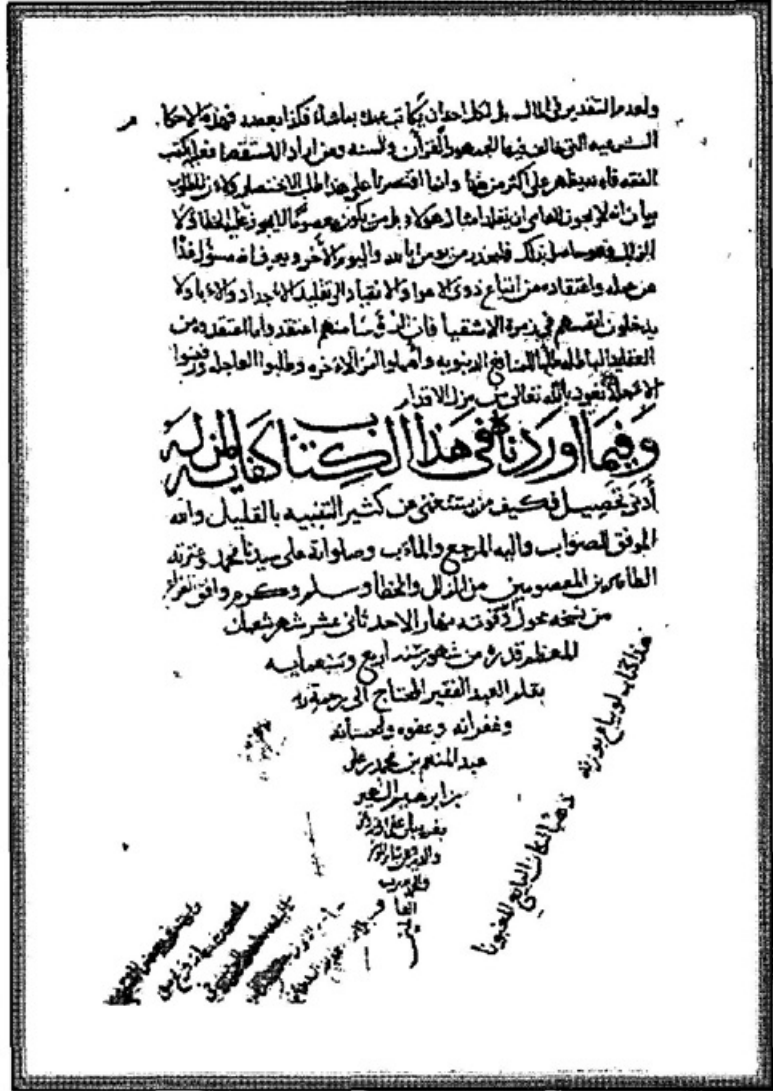 ولعدم التقدير في المال بل لكل احد ان يكاتب عبده بما شاء فكذا بعضه فهذه الاحكا
الشرعيه التي خالف فيها الجمهور القرآن والسنه ومن اراد الاستقصا فعليه بكتب
الفقه فانه يظهر على اكثر من هذا وانما اقتصرنا على هذا لطلب الاختصار ولان المطلوب
بيان انه لا يجوز للعامي ان يقلد امثال هؤلاء بل من يكون معصوما لا يجوز عليه الخطا ولا
الزلل وهو حاصل بذلك فليحذر من يومن بالله واليوم الآخر ويعرف انه مسؤل غدا
عن عمله واعتقاده من اتباع ذوى الاهوا والانقياد الى تقليد الاجداد والاباء ولا
يدخلون انفسهم في زمرة الاشقيا فان
العقايد الباطله طلبا للمنافع الدنيويه وأهملوا امر الآخره وطلبوا العاجله ورفضوا
الآجله نعوذ بالله تعالى من مزل الاقدام
وفيما اوردناه فى هذا الكتاب كفايه لمن له
أدنى تحصيل فكيف من يستغنى عن كثير التنبيه بالقليل والله
الموفق للصواب واليه المرجع والمآب وصلواته على سيدنا محمد وعترته
الطاهرين المعصومين من الزلل والخطا وسلم وكرم وافق الفراغ
من نسخه بحول الله وقوته نهار الاحد ثانى عشر شهر شعبان
المعظم قدره من شهور سنه اربع وسبعمايه
بقلم العبد الفقير المحتاج الى رحمة ربه
وغفرانه وعفوه واحسانه
عبد المنعم بن محمد بن على
بن ابرهيم
والحمد لله رب
العالمين
هذا كتاب لو يباع بوزنه
ذهبا لكان البايع المغبونا